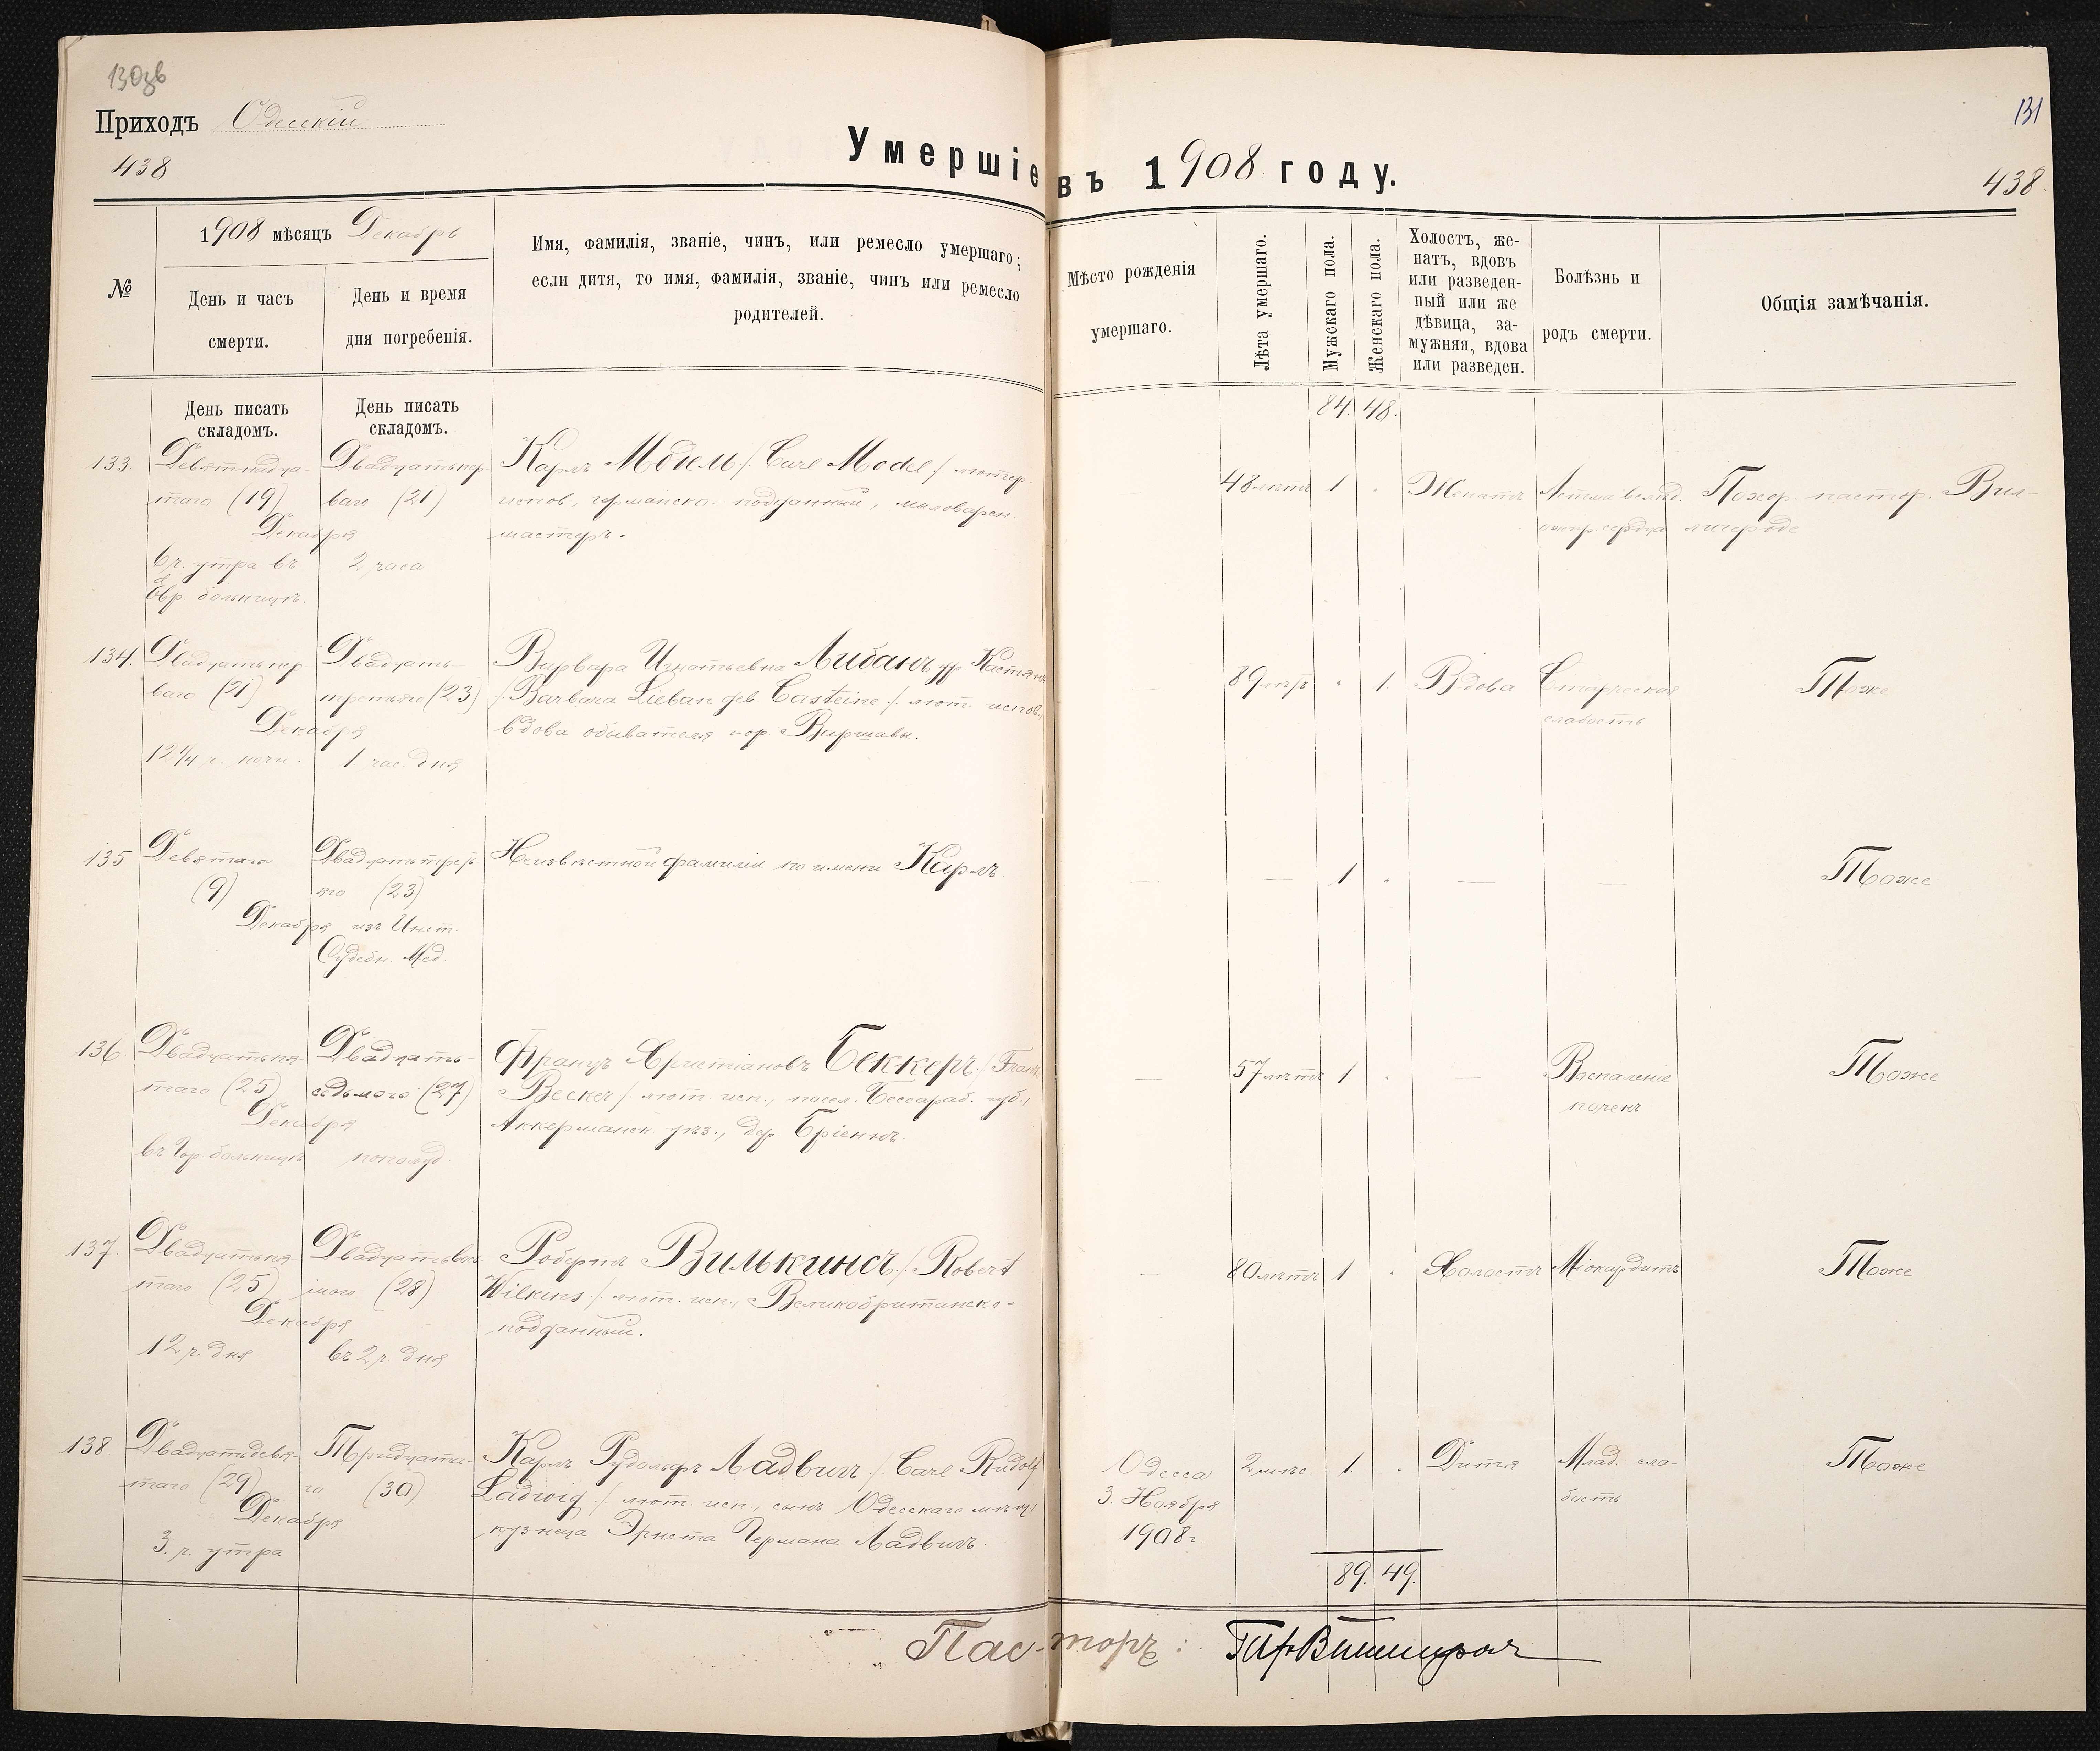 130зв
Приходъ Одесскій
438
Умершіе въ 1908 году.
131
438.
№
1908 мѣсяцъ Декабрь
День и часъ смерти.
День и время дня погребенія.
Имя, фамилія, званіе, чинъ, или ремесло умершаго;
если дитя, то имя, фамилія, званіе, чинъ или ремесло
родителей.
Мѣсто рожденія
умершаго.
Лѣта умершаго.
Мужскаго пола.
Женскаго пола.
Холостъ, же-
натъ, вдовъ
или разведен-
ный или же
дѣвица, за-
мужняя, вдова
или разведен.
Болѣзнь и
родъ смерти.
Общія замѣчанія.
День писать
складомъ.
День писать
складомъ.
84. 48.
133.
Девятнадца-
таго (19)
Декабря
6 ч. утра въ
Евр. больницѣ.
Двадцатьпер
ваго (21)
2 часа
Карлъ /. Carl Model /. лютер.
испов., германско-подданный, мыловарен.
мастеръ.
48 лѣтъ
1
Женатъ
Астма
сердца
Похор. пастор.
134.
Двадцатьпер
ваго (21)
Декабря
12 1/4 ч. ночи.
Двадцать
третьяго (23)
1 час. дня
Варвара Игнатьевна Либанъ ур. Кастэнъ
/. Barbara Lieban geb Casteine /. лют. испов.,
вдова обывателя гор. Варшавы.
—
89 лѣтъ
1.
Вдова
Старческая
слабость
Тоже
135
Девятаго
(9)
Декабря
Двадцатьтреть
яго (23)
изъ Инст.
Судебн. Мед.
Неизвѣстной фамиліи по имени Карлъ
— —
1
— —
Тоже
136.
Двадцатьпя-
таго (25)
Декабря
въ Гор. больницѣ
Двадцать-
седьмого (27)
пополуд.
Францъ Христіановъ Беккеръ /. Franz
Becker /. лют. исп., посел. Бессараб. губ.,
Аккерманск. уѣз., дер. Бріеннъ.
—
57 лѣтъ
1
—
Воспаленіе
почекъ
Тоже
137.
Двадцатьпя-
таго (25)
Декабря
12 ч. дня
Двадцатьвось
мого (28)
въ 2 ч. дня
Робертъ Вилькинсъ /. Robert
Wilkins /. лют. исп., Великобританско-
подданный.
—
80 лѣтъ
1
Холостъ
Міокардитъ
Тоже
138.
Двадцатьдевя-
таго (29)
Декабря
3. ч. утра
Тридцата-
го (30)
Карлъ Рудольфъ Ладвигъ /. Carl Rudolf
Ladwig /. лют. исп., сынъ Одесскаго мѣщ.,
кузнеца Эрнста Германа Ладвигъ.
Одесса
3. Ноября
1908 г.
2 мѣс.
1.
Дитя
Млад. сла-
бость
Тоже
89. 49.
Пасторъ: